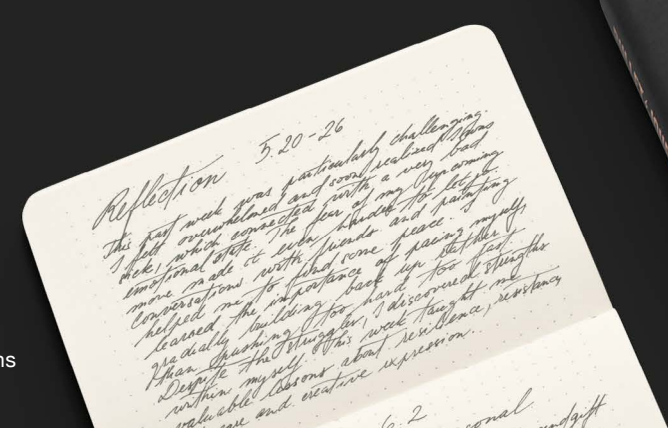 ns
Reflection 5.20-26
This past week was particularly challenging.
I felt overwhelmed and soon realized I was
sick, which connected with a very bad
emotional state. The fear of my upcoming
move made it even harder to let go.
conversations with friends and painting
helped me to find some peace. I
learned the importance of pacing myself,
gradually building back up rather
than pushing too hard too fast.
Despite the struggles, I discovered strengths
within myself. This week taught me
valuable lessons about resilience, resistance
and creative expression.
6.2